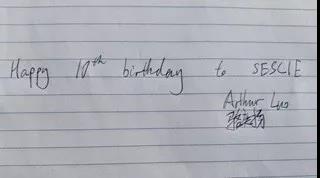 Happy 10th birthday to SESCIE
Arthur Luo